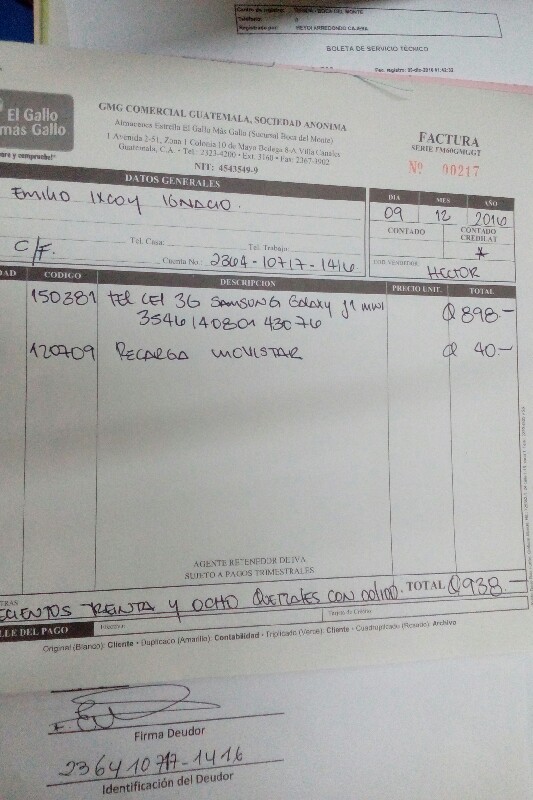 Centro de registro: TIENDA - BOCA DEL MONTE
Teléfono: 0
Registrado por: HEYDI ARREDONDO CAJERA
BOLETA DE SERVICIO TÉCNICO
El Gallo
más Gallo
GMG COMERCIAL GUATEMALA, SOCIEDAD ANONIMA
Almacenes Estrella El Gallo Más Gallo (Sucursal Boca del Monte)
1 Avenida 2-51, Zona 1 Colonia 10 de Mayo Bodega 8-A Villa Canales
Guatemala, C.A. • Tel: 2323-4200 • Ext. 3160 • Fax: 2367-3902
NIT: 4543549-9
FACTURA
SERIE FM60GMGGT
Nº 00217
DATOS GENERALES
EMILIO IXCOY IGNACIO.
DIA MES AÑO
09 12 2016
CONTADO CONTADO CREDILAT
C/F. Tel. Casa: Tel. Trabajo:
Cuenta No.: 2364-10717-1416
HECTOR
DAD CODIGO DESCRIPCION PRECIO UNIT. TOTAL
150381 tEL CEL 3G SAMSUNG Galaxy J1 MINI Q 898.-
354614080143076
120709 RECARGA MOVISTAR Q 40.-
AGENTE RETENEDOR DE IVA
SUJETO A PAGOS TRIMESTRALES
TRAS ECIENTOS TREINTA Y OCHO QUETZALES CON 00/100. TOTAL Q938.-
LLE DEL PAGO Efectivo
Original (Blanco): Cliente • Duplicado (Amarillo): Contabilidad • Triplicado (Verde): Cliente • Cuadruplicado (Rosado): Archivo
Firma Deudor
2364 10717-1416
Identificación del Deudor